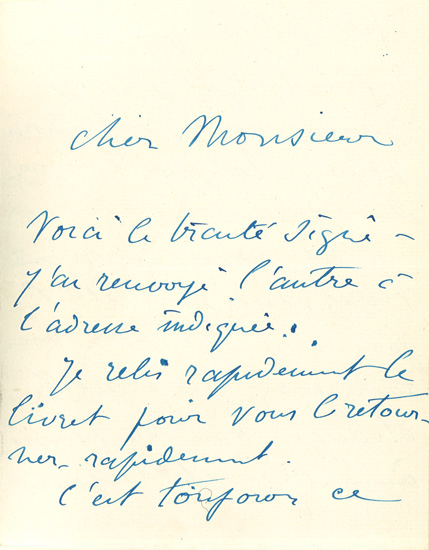 Cher Monsieur
Voici le traité signé –
j'ai renvoyé l'autre à
l'adresse indiquée.
Je relis rapidement le
livret pour vous le retour-
ner rapidement.
C'est toujours ce